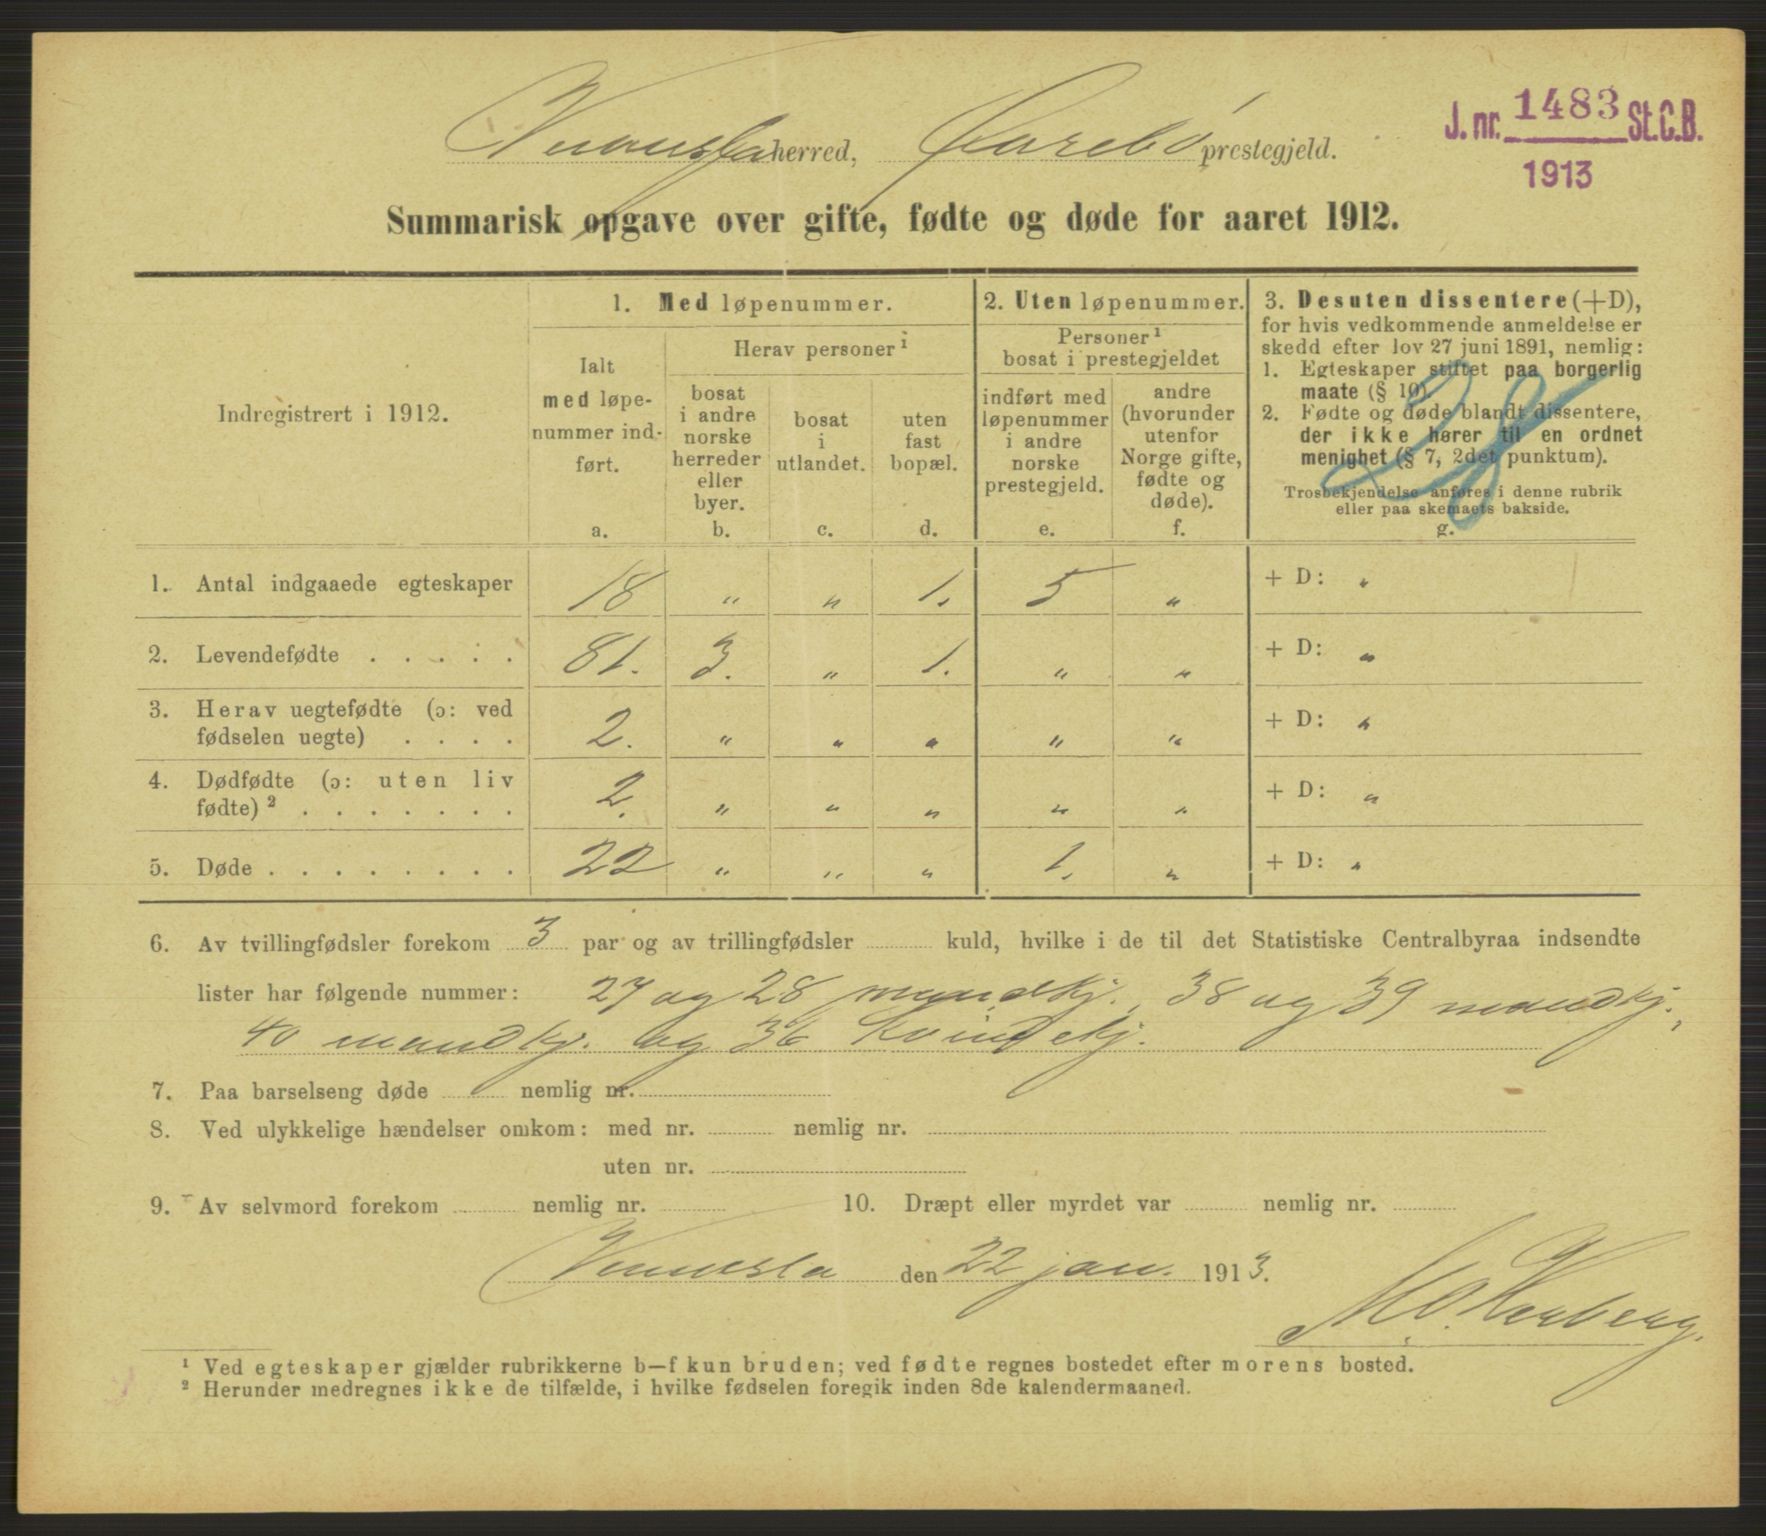 Vennesla herred, Øvrebø prestegjeld.
J. nr. 1483 St.C.B.
1913
Summarisk opgave over gifte, fødte og døde for aaret 1912.
Indregistrert i 1912.
1. Med løpenummer.
Ialt med løpenummer indført. a.
Herav personer¹
bosat i andre norske herreder eller byer. b.
bosat i utlandet. c.
uten fast bopæl. d.
2. Uten løpenummer.
Personer¹ bosat i prestegjeldet
indført med løpenummer i andre norske prestegjeld. e.
andre (hvorunder utenfor Norge gifte, fødte og døde). f.
3. Desuten dissentere (+D),
for hvis vedkommende anmeldelse er
skedd efter lov 27 juni 1891, nemlig:
1. Egteskaper stiftet paa borgerlig
maate (§ 10).
2. Fødte og døde blandt dissentere,
der ikke hører til en ordnet
menighet (§ 7, 2det punktum).
Trosbekjendelse anføres i denne rubrik
eller paa skemaets bakside.
g.
28
1. Antal indgaaede egteskaper 18 " " 1. 5 " + D: "
2. Levendefødte . . . . . 81. 3. " 1. " " + D: "
3. Herav uegtefødte (ɔ: ved
fødselen uegte) . . . . 2. " " " " " + D: "
4. Dødfødte (ɔ: uten liv
fødte)² . . . . . . . 2. " " " " " + D: "
5. Døde . . . . . . . . 22 " " " 1. " + D: "
6. Av tvillingfødsler forekom 3 par og av trillingfødsler kuld, hvilke i de til det Statistiske Centralbyraa indsendte
lister har følgende nummer: 27 og 28 mandkj., 38 og 39 mandkj.,
40 mandkj. og 36 kvindekj.
7. Paa barselseng døde nemlig nr.
8. Ved ulykkelige hændelser omkom: med nr. nemlig nr.
uten nr.
9. Av selvmord forekom nemlig nr. 10. Dræpt eller myrdet var nemlig nr.
Vennesla den 22 jan. 1913.
¹ Ved egteskaper gjælder rubrikkerne b—f kun bruden; ved fødte regnes bostedet efter morens bosted.
² Herunder medregnes ikke de tilfælde, i hvilke fødselen foregik inden 8de kalendermaaned.